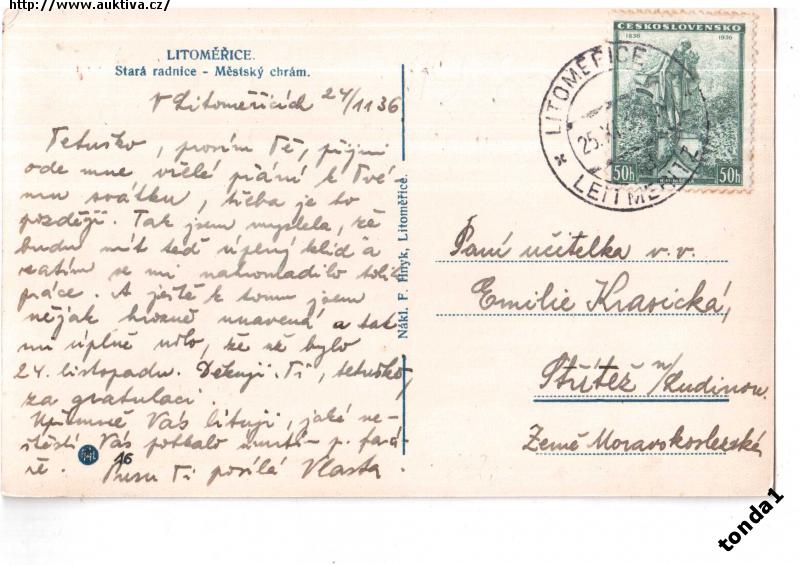 http://www.auktiva.cz/
LITOMĚŘICE.
Stará radnice - Městský chrám.
V Litoměřicích 24/11 36
Tetuško, prosím Tě, přijmi
ode mne vřelé přání k Tvé-
mu svátku, třeba je to
později. Tak jsem myslela, že
budu mít teď úplný klid a
zatím se mi nahromadilo tolik
práce. A ještě k tomu jsem
nějak hrozně unavená a tak
mi úplně ušlo, že už bylo
24. listopadu. Děkuji Ti, tetuško,
za gratulaci.
Upřímně Vás lituji, jaké ne-
štěstí Vás potkalo p. fará-
ře. Pusu Ti posílá Vlasta.
16
Nákl. F. Hnyk, Litoměřice.
ČESKOSLOVENSKO
1836 1936
50h 50h
LITOMĚŘICE
25.XI
LEITMERITZ
Paní učitelka v. v.
Emilie Krasická,
Střítež n/Ludinou
Země Moravskoslezská
tonda1